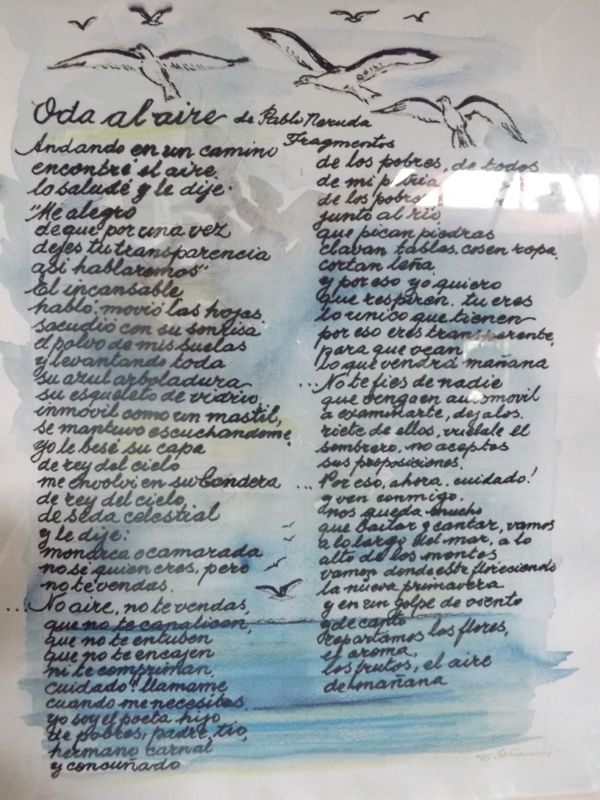 Oda al aire de Pablo Neruda
Fragmentos
Andando en un camino
encontré el aire.
lo saludé y le dije.
"Me alegro
de que por una vez
dejes tu transparencia
asi hablaremos"
El incansable
habló. movió las hojas
sacudió con su sonrisa
el polvo de mis suelas
y levantando toda
su azul arboladura
su esqueleto de vidrio,
inmóvil como un mastil,
se mantuvo escuchandome
Yo le besé su capa
de rey del cielo
me envolvi en su bandera
de rey del cielo,
de seda celestial
y le dije:
monarca o camarada
no sé quien eres, pero
no te vendas.
...No aire, no te vendas,
que no te canalicen,
que no te entuben
que no te encajen
ni te compriman,
cuidado! llamame
cuando me necesites,
yo soy el poeta hijo
de pobres, padre, tio,
hermano carnal
y concuñado
de los pobres, de todos
de mi patria
de los pobres
junto al rio
que pican piedras
clavan tablas. cosen ropa,
cortan leña.
y por eso yo quiero
que respiren. tu eres
lo unico que tienen
por eso eres transparente,
para que vean
lo que vendrá mañana
...No te fies de nadie
que venga en automovil
a examinarte, dejalos.
riete de ellos, vuelale el
sombrero, no aceptes
sus proposiciones!
...Por eso, ahora, cuidado!
y ven conmigo.
nos queda mucho
que bailar y cantar, vamos
a lo largo del mar, a lo
alto de los montes
vamos donde este floreciendo
la nueva primavera
y en un golpe de viento
y de canto
repartamos las flores,
el aroma,
los frutos, el aire
de mañana